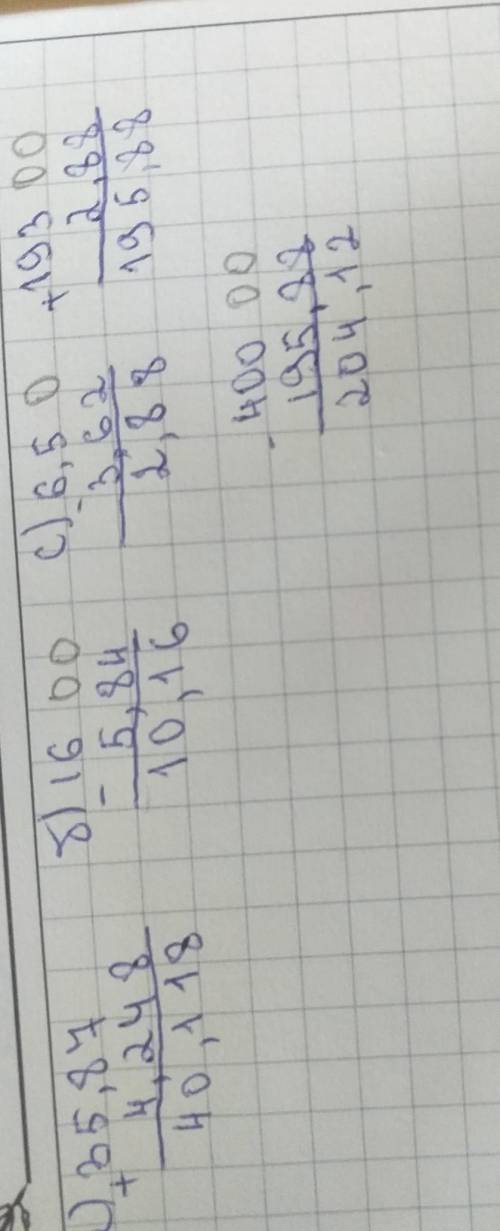 ) 35,87
+ 4,248
40,118
б) 16 00
- 5,84
10,16
с) 6,5 0
- 3,62
2,88
+ 193 00
2,88
195,88
- 400 00
195,88
204,12